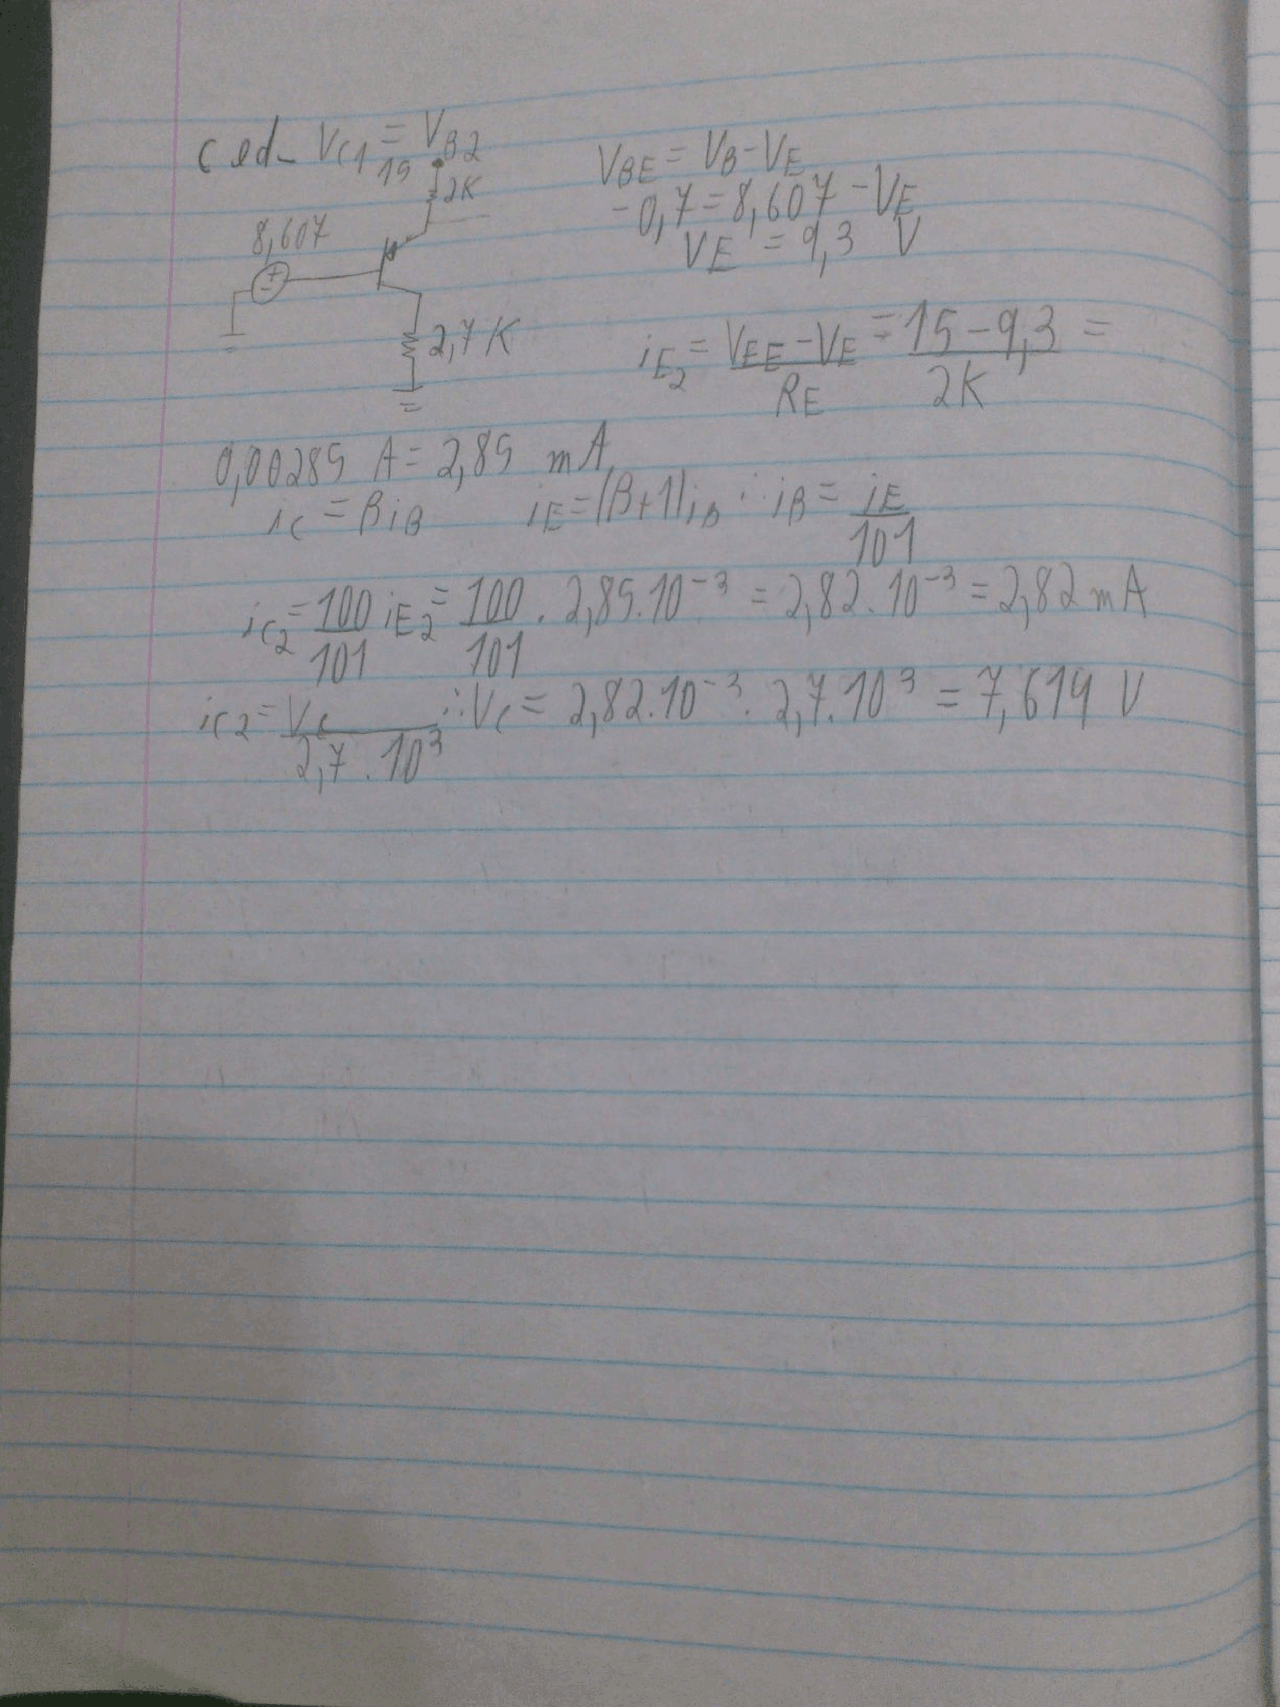 c e d- VC1 = VB2
15
2K
8,607
2,7K
VBE = VB - VE
-0,7 = 8,607 - VE
VE = 9,3 V
iE2 = (VEE - VE)/RE = (15 - 9,3)/2K =
0,00285 A = 2,85 mA
iC = βiB iE = (β+1)iB ∴ iB = iE/101
iC2 = 100/101 iE2 = 100/101 . 2,85.10⁻³ = 2,82.10⁻³ = 2,82 mA
iC2 = VC/2,7.10³ ∴ VC = 2,82.10⁻³ . 2,7.10³ = 7,614 V